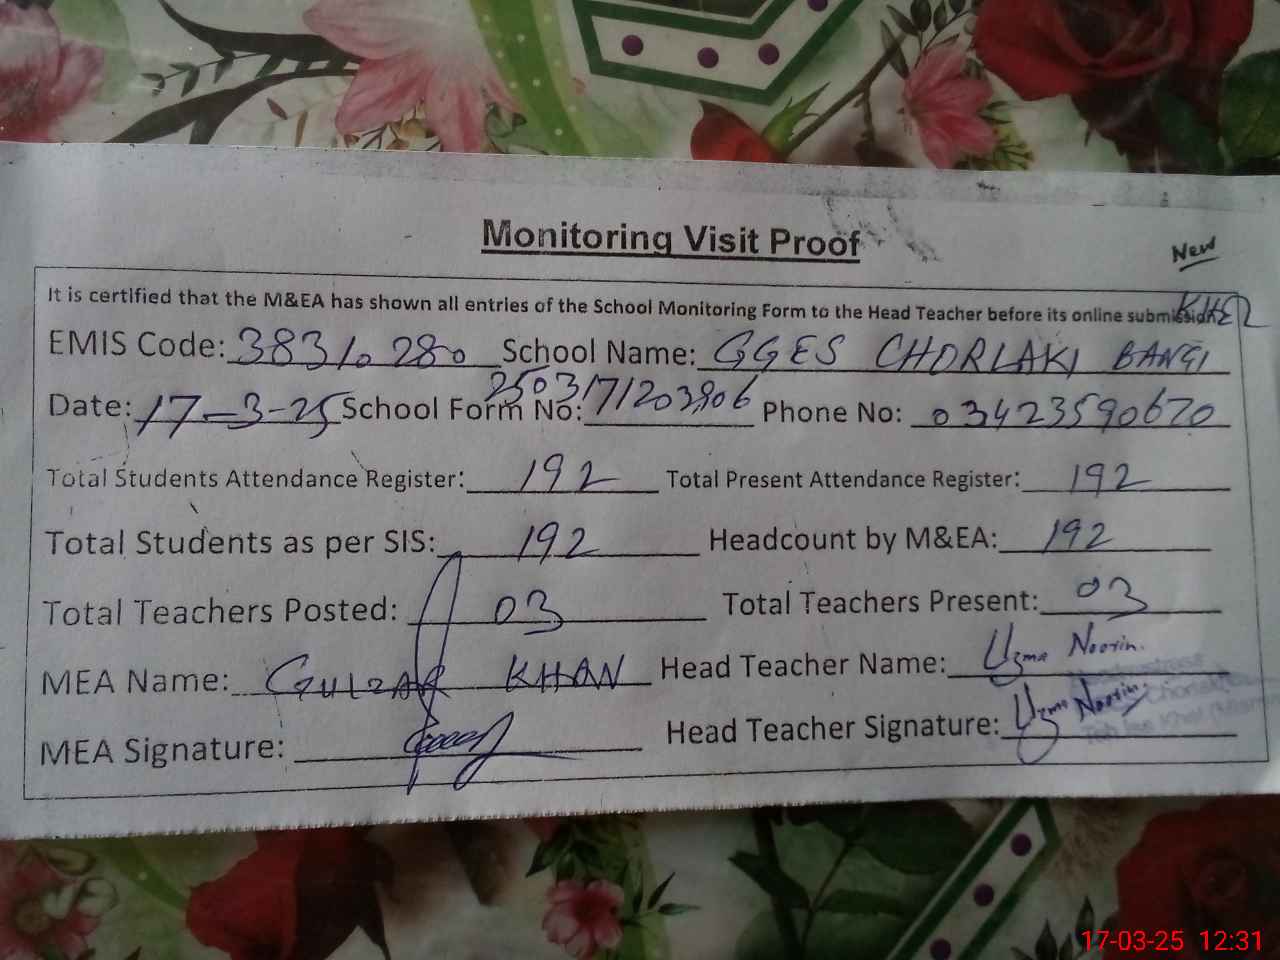 Monitoring Visit Proof
New
It is certified that the M&EA has shown all entries of the School Monitoring Form to the Head Teacher before its online submission.
KHEL
EMIS Code: 38310280 School Name: GGES CHORLAKI BANGI
Date: 17-3-25 School Form No: 2503171203906 Phone No: 03423590670
Total Students Attendance Register: 192 Total Present Attendance Register: 192
Total Students as per SIS: 192 Headcount by M&EA: 192
Total Teachers Posted: 03 Total Teachers Present: 03
MEA Name: GULZAR KHAN Head Teacher Name: Uzma Noorin.
MEA Signature: Head Teacher Signature: Uzma Noorin
17-03-25 12:31